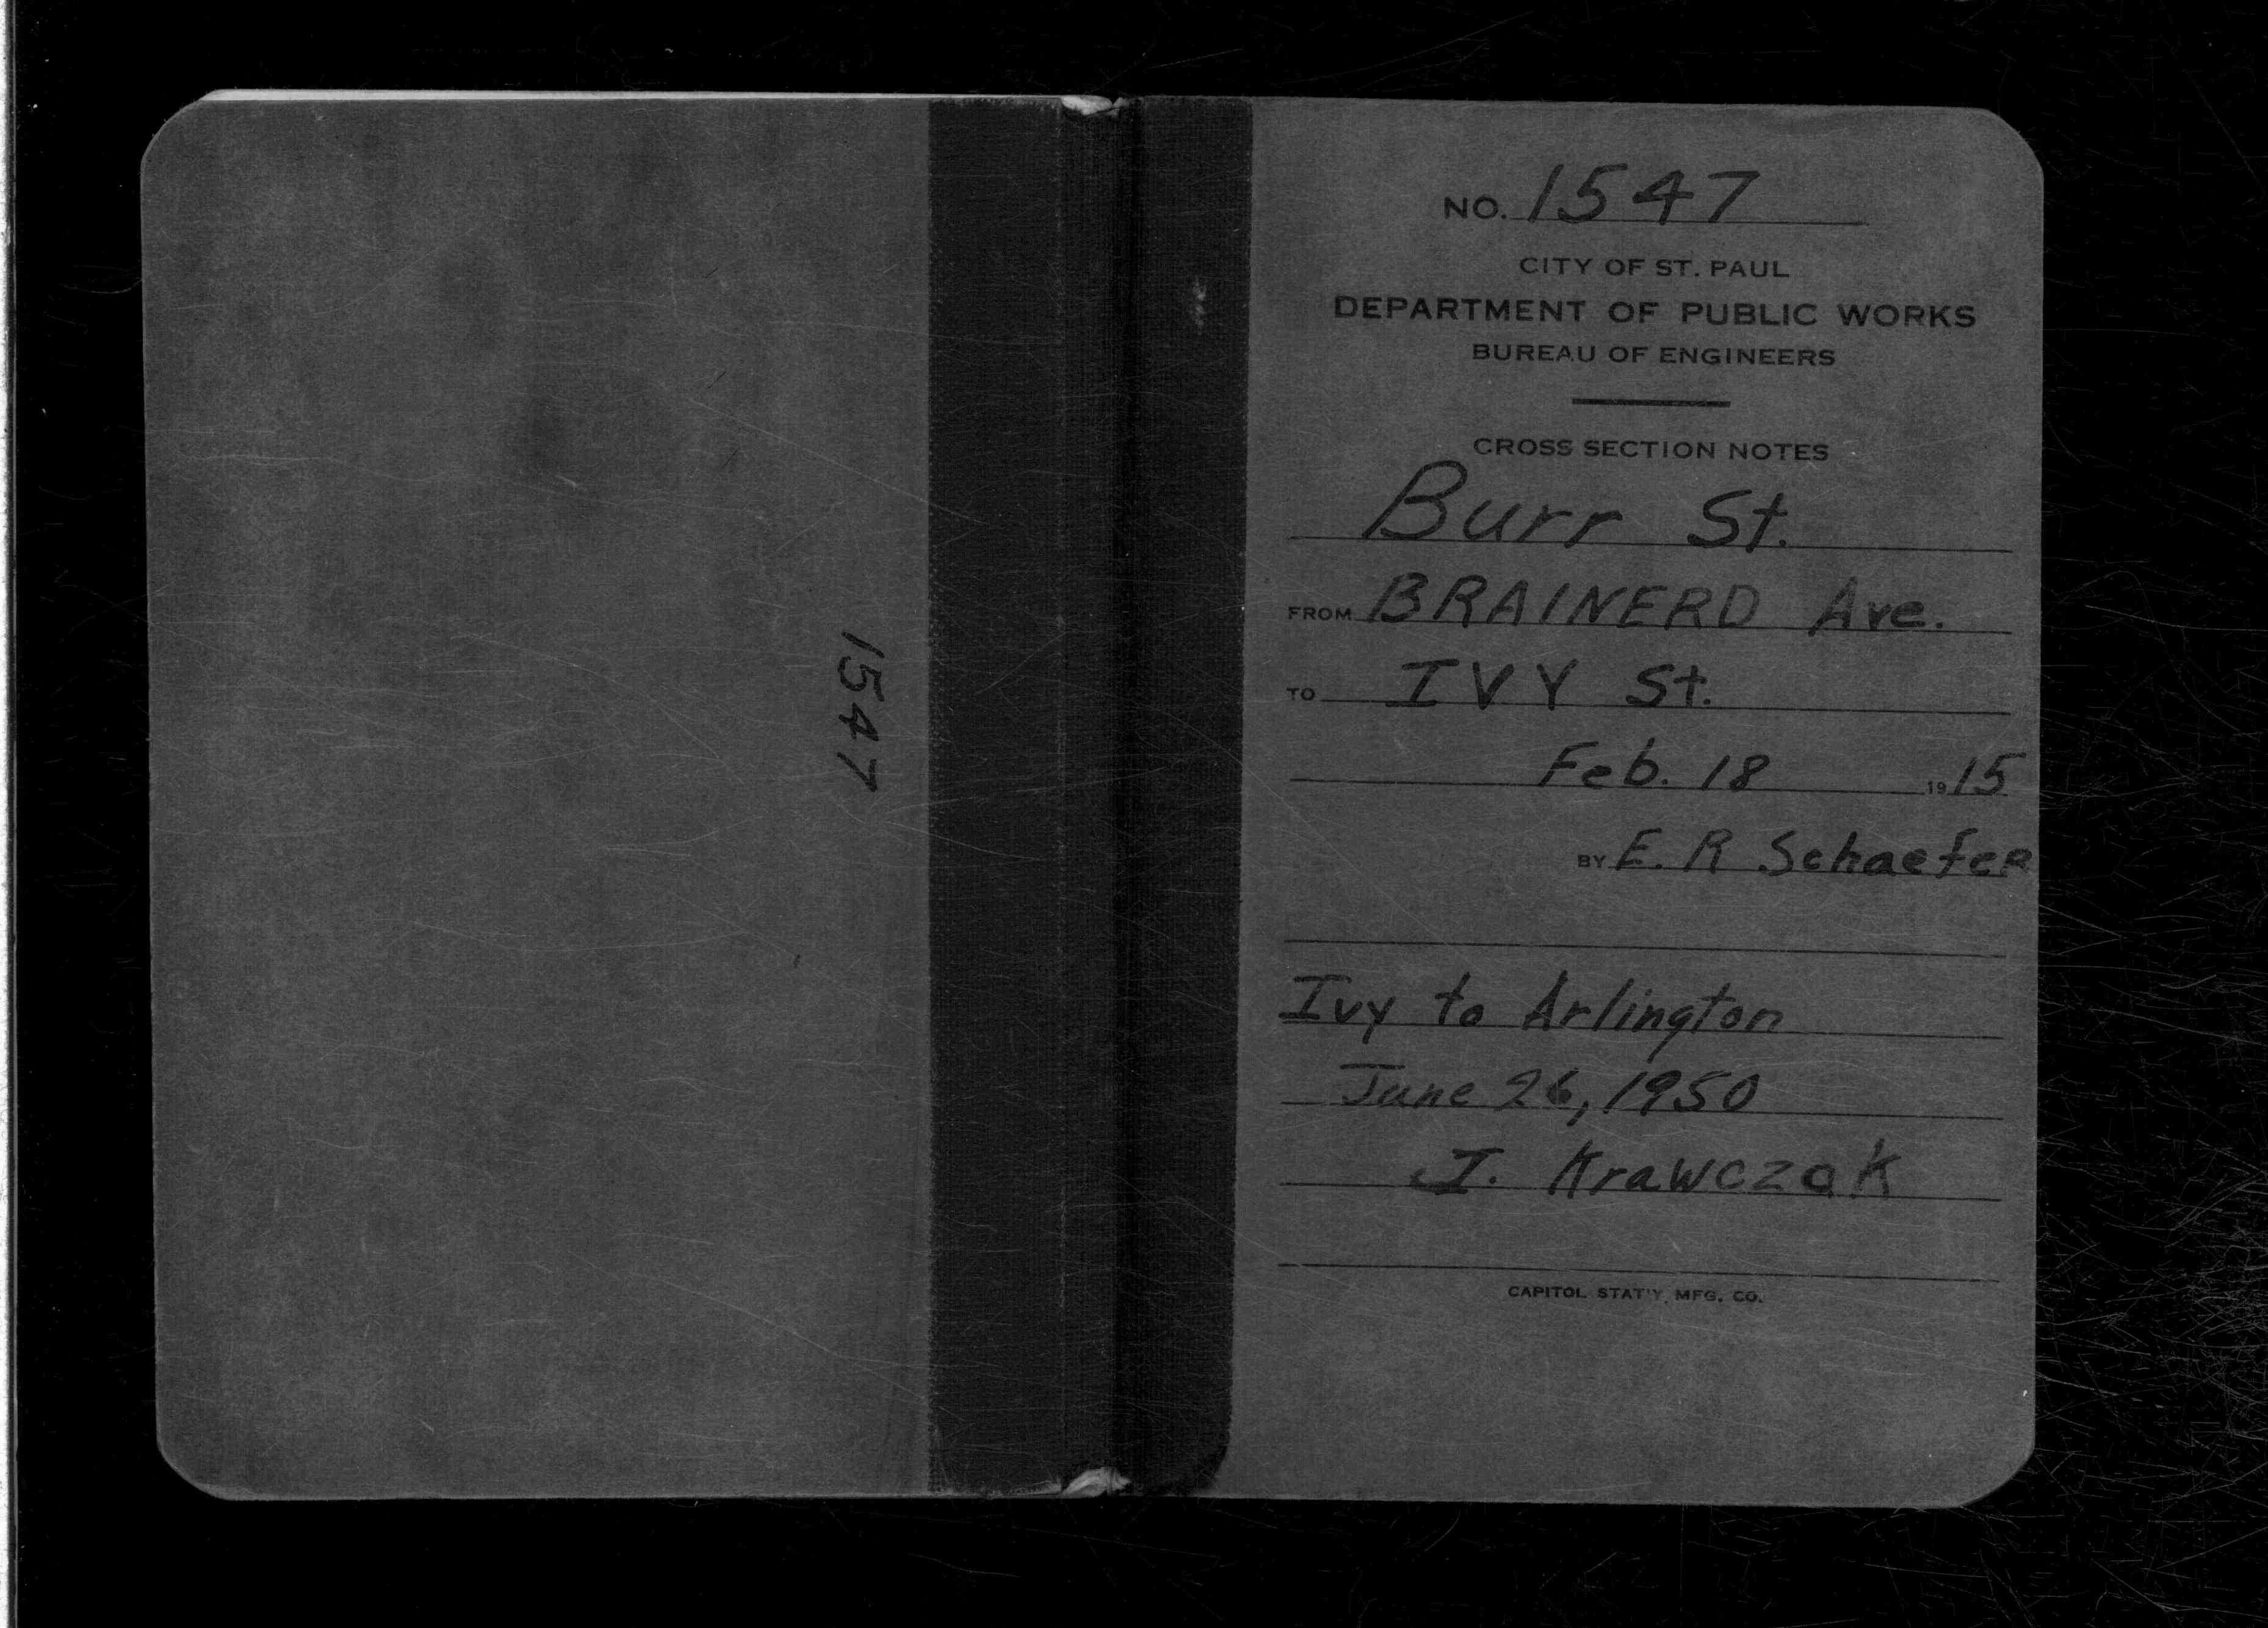 1547
NO. 1547
CITY OF ST. PAUL
DEPARTMENT OF PUBLIC WORKS
BUREAU OF ENGINEERS
CROSS SECTION NOTES
Burr St.
FROM BRAINERD Ave.
TO IVY St.
Feb. 18 1915
BY E. R Schaefer
Ivy to Arlington
June 26, 1950
J. Krawczak
CAPITOL STAT'Y. MFG. CO.